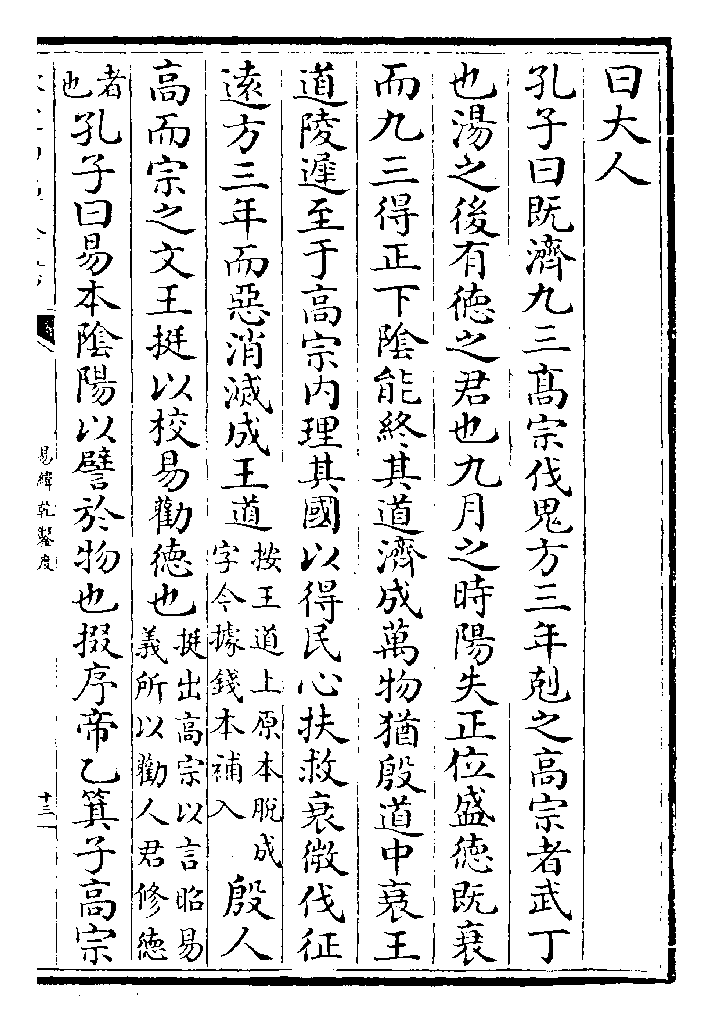 曰大人
孔子曰既濟九三髙宗伐鬼方三年剋之高宗者武丁
也湯之後有徳之君也九月之時陽失正位盛徳既衰
而九三得正下隂能終其道濟成萬物猶殷道中衰王
道陵遲至于高宗内理其國以得民心扶救衰微伐征
逺方三年而惡消滅成王道按王道上原本脱成字今據錢本補入殷人
高而宗之文王挺以校易勸徳也挺出高宗以言昭易義所以勸人君修徳
者也孔子曰易本隂陽以譬於物也掇序帝乙箕子高宗
易緯乾鑿度
十三